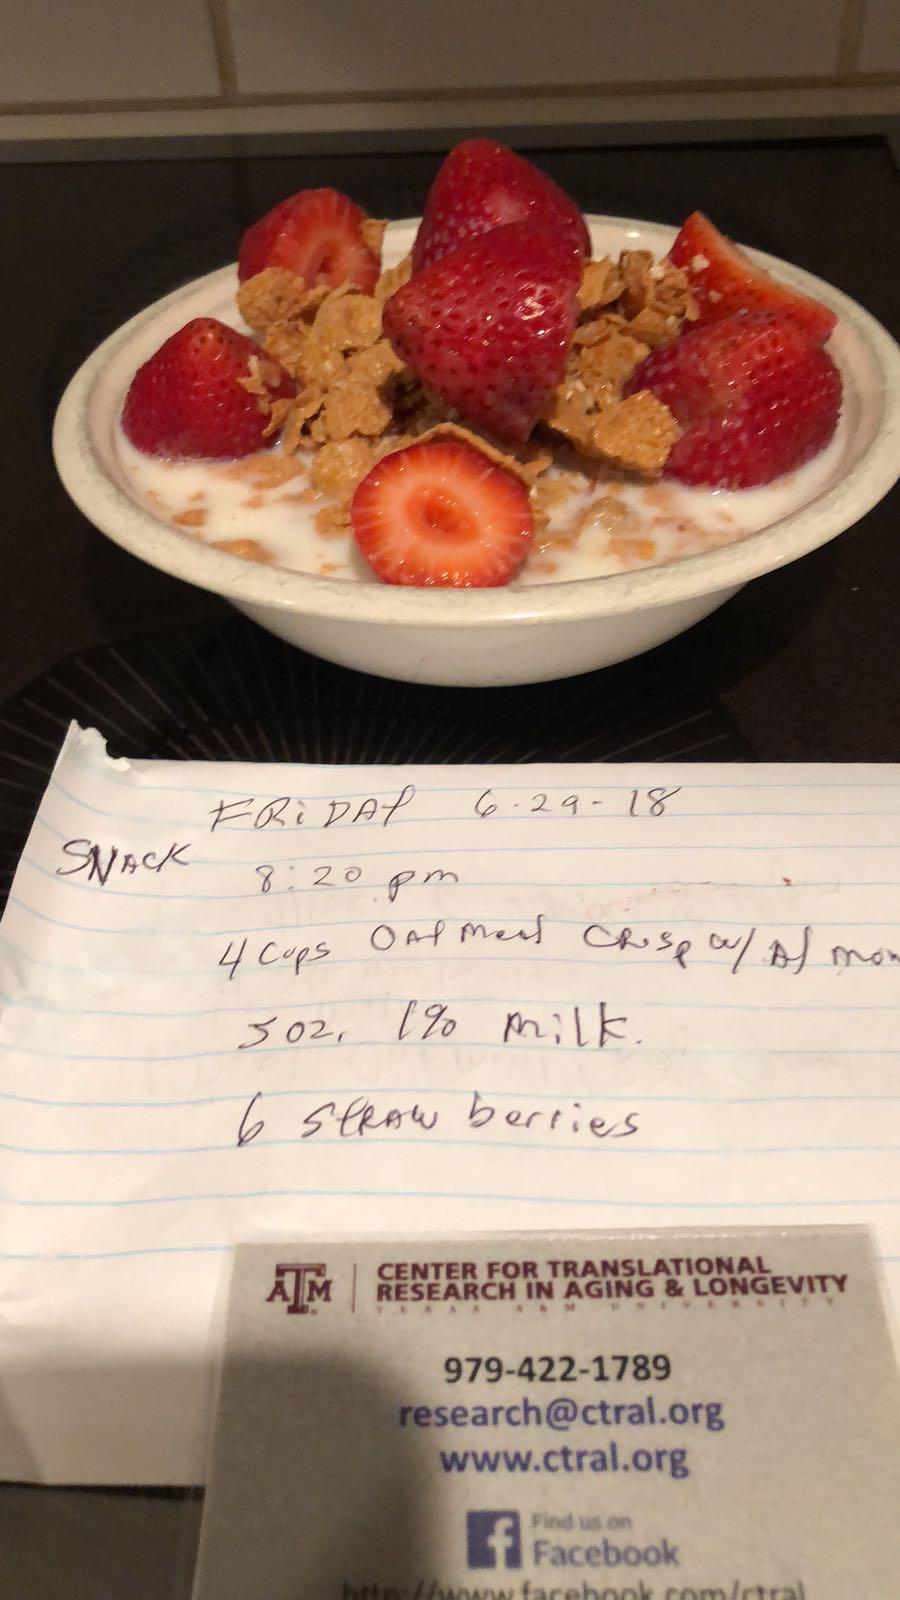 FRIDAY 6-29-18
SNACK
8:20 pm
4 Cups Oatmeal Crisp w/ Almon
5 oz. 1% Milk.
6 STRAWberries
ATM CENTER FOR TRANSLATIONAL
RESEARCH IN AGING & LONGEVITY
TEXAS A&M UNIVERSITY
979-422-1789
research@ctral.org
www.ctral.org
f Find us on
Facebook
http://www.facebook.com/ctral